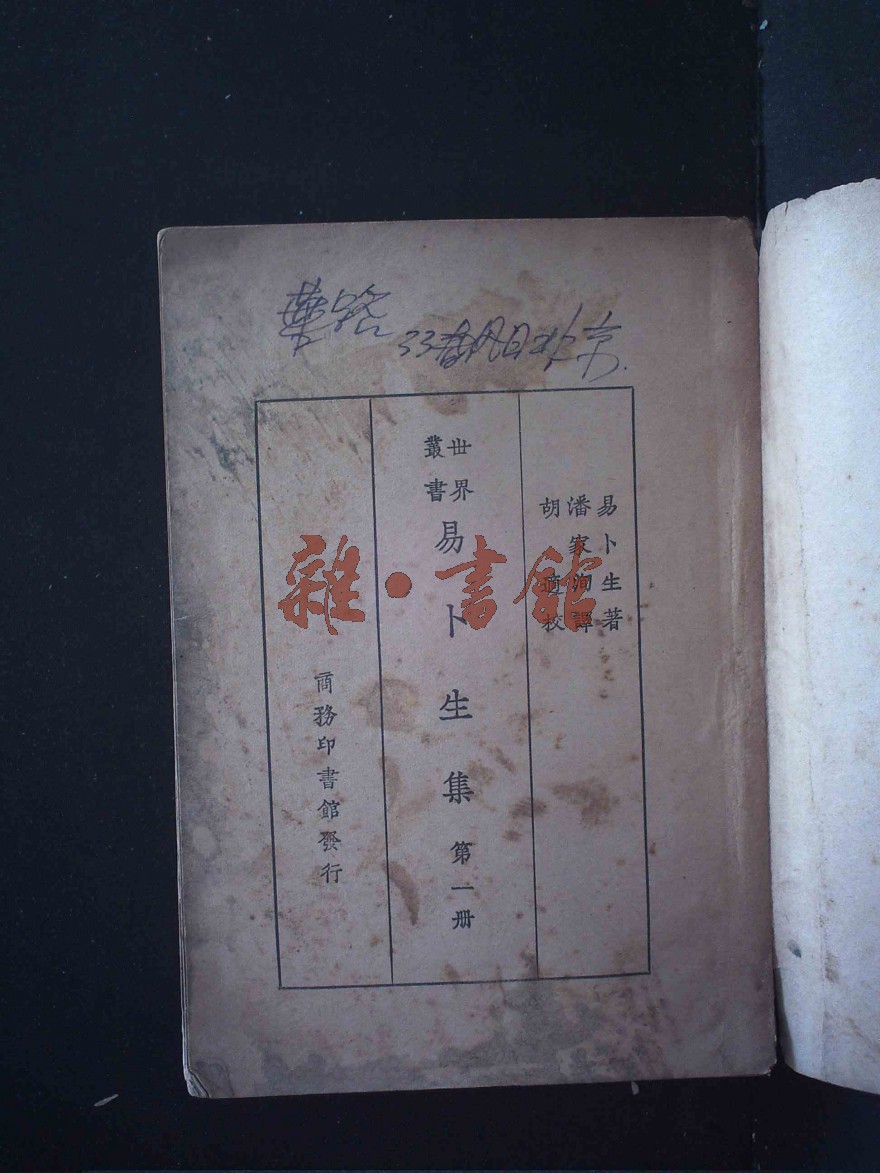 華路
33春节日北京.
易卜生著
潘家洵譯
胡適校
世界
叢書
易卜生集 第一册
商務印書館發行
雜·書館